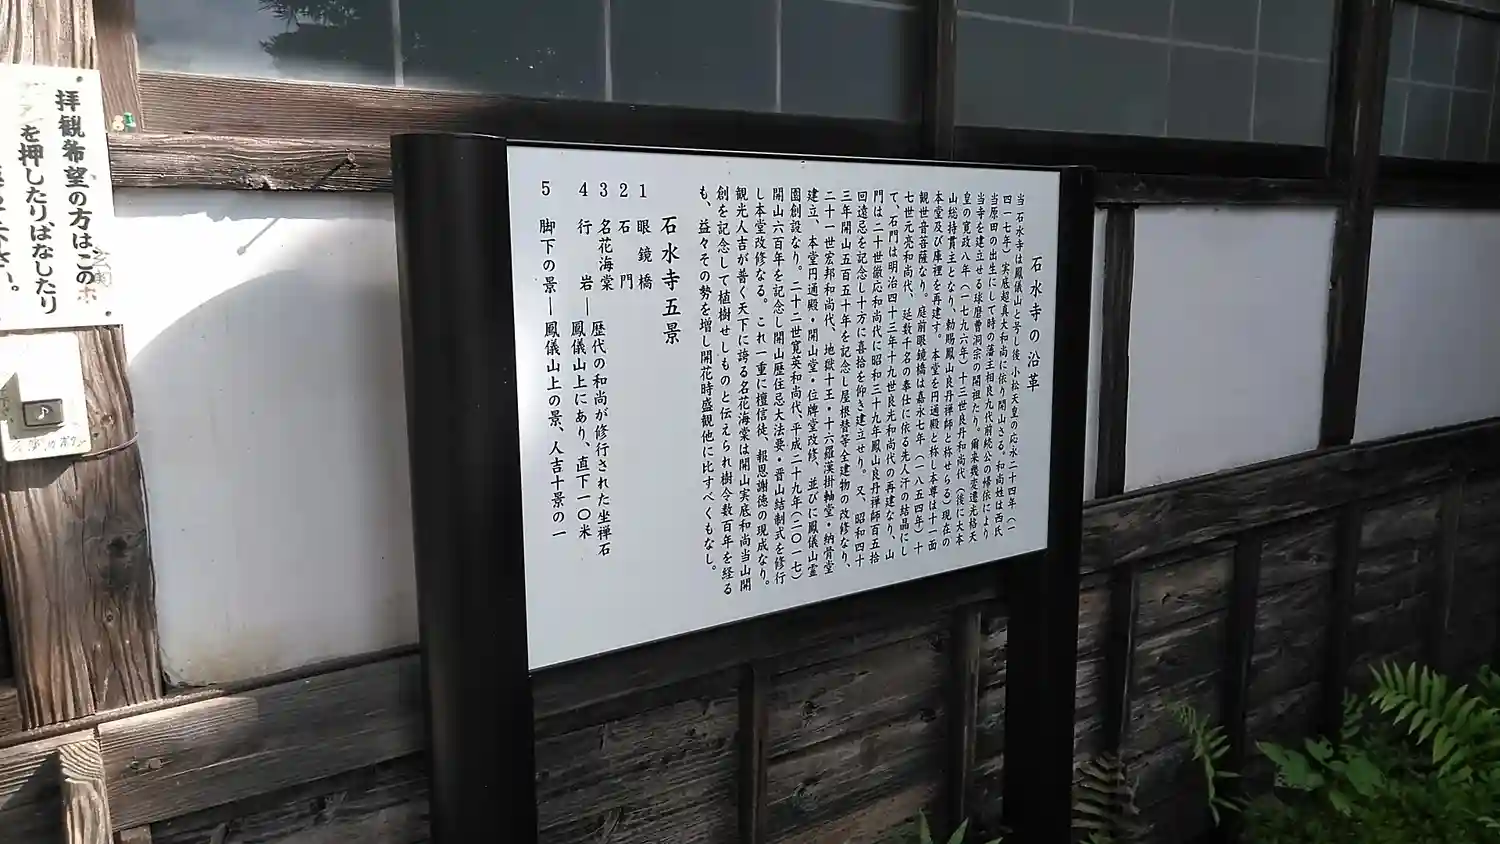 石水寺の沿革
当石水寺は鳳儀山と号し後小松天皇の応永二十四年(一
四一七年)実底超真大和尚に依り開山さる。和尚姓は西氏
当原田の出生にして時の藩主相良九代前続公の帰依により
当寺を建立せる球磨曹洞宗の開祖たり。爾来幾変遷光格天
皇の寛政八年(一七九六年)十三世良丹和尚代(後に大本
山総持貫主となり、勅賜鳳山良丹禅師と称せらる)現在の
本堂及び庫裡を再建す。本堂を円通殿と称し本尊は十一面
観世音菩薩なり。庭前眼鏡橋は嘉永七年(一八五四年)十
七世元亮和尚代、延数千名の奉仕に依る先人汗の結晶にし
て、石門は明治四十三年十九世良光和尚代の再建なり、山
門は二十世徹応和尚代に昭和三十九年鳳山良丹禅師百五拾
回遠忌を記念し十方に喜捨を仰ぎ建立せり。又、昭和四十
三年開山五百五十年を記念し屋根替等全建物の改修なり、
二十一世宏邦和尚代、地獄十王・十六羅漢掛軸堂・納骨堂
建立、本堂円通殿・開山堂・位牌堂改修、並びに鳳儀山霊
園創設なり。二十二世寛英和尚代、平成二十九年(二〇一七)
開山六百年を記念し開山歴住忌大法要・晋山結制式を修行
し本堂改修なる。これ一重に檀信徒、報恩謝徳の現成なり。
観光人吉が普く天下に誇る名花海棠は開山実底和尚当山開
創を記念して植樹せしものと伝えられ樹令数百年を経る
も、益々その勢を増し開花時盛観他に比すべくもなし。
石水寺五景
1 眼鏡橋
2 石門
3 名花海棠
4 行岩―歴代の和尚が修行された坐禅石
鳳儀山上にあり、直下一〇米
5 脚下の景―鳳儀山上の景、人吉十景の一
拝観希望の方は、このボ
を押したり、ばなしたり
い。